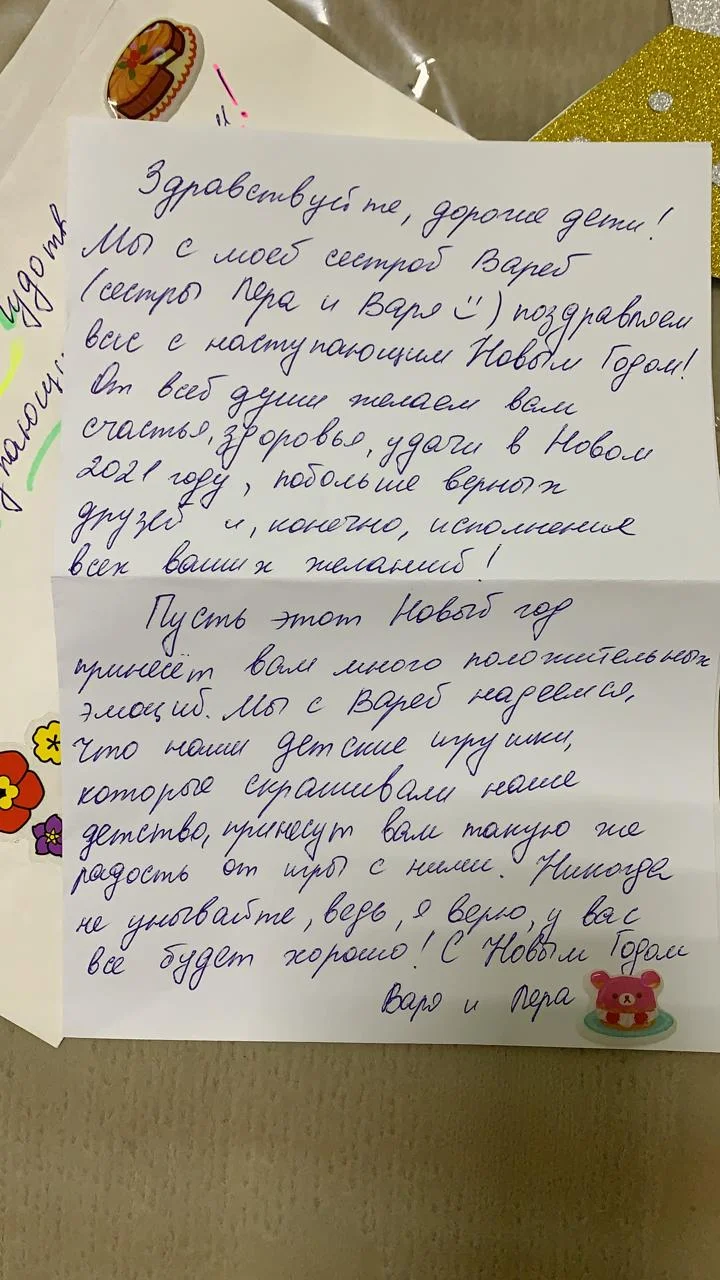 Здравствуйте, дорогие дети!
Мы с моей сестрой Варей
(сестры Лера и Варя :) ) поздравляем
вас с наступающим Новым Годом!
От всей души желаем вам
счастья, здоровья, удачи в Новом
2021 году, побольше верных
друзей и, конечно, исполнения
всех ваших желаний!
Пусть этот Новый год
принесёт вам много положительных
эмоций. Мы с Варей надеемся,
что наши детские игрушки,
которые скрашивали наше
детство, принесут вам такую же
радость от игры с ними. Никогда
не унывайте, ведь, я верю, у вас
все будет хорошо! С Новым Годом
Варя и Лера